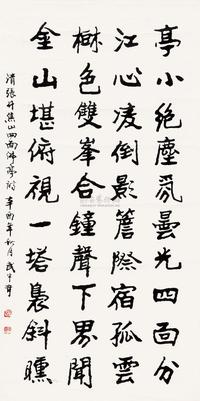 亭小絕塵氛曇光四面分
江心凌倒影簷際宿孤雲
樹色雙峯合鐘聲下界聞
金山堪俯視一塔裊斜曛
清張丹焦山四面佛亭詩 辛酉年秋月武中奇